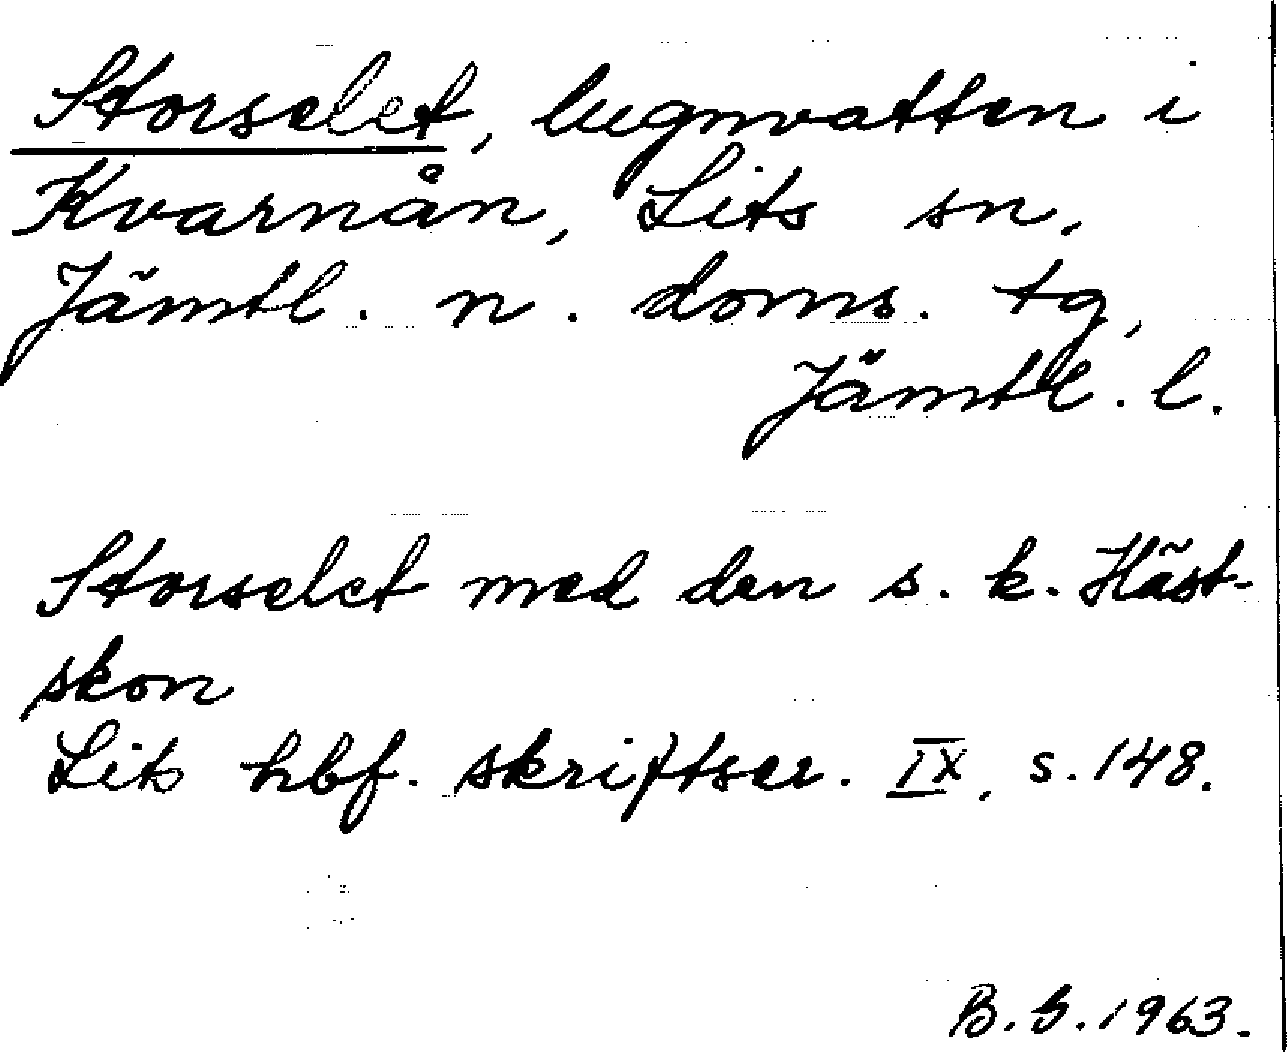 Storselet, lugnvatten i
Kvarnån, Lits sn,
Jämtl. n. doms. tg,
Jämtl. l.
Storselet med den s. k. Häst-
skon
Lits hbf. skriftser. IX, s. 148.
B. G. 1963.